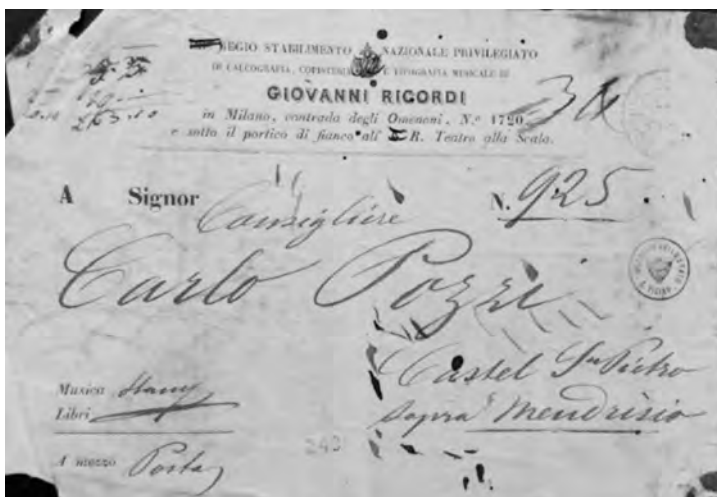 REGIO STABILIMENTO NAZIONALE PRIVILEGIATO
DI CALCOGRAFIA, COPISTERIA E TIPOGRAFIA MUSICALE DI
GIOVANNI RICORDI
in Milano, contrada degli Omenoni, N.º 1720
e sotto il portico di fianco all' I. R. Teatro alla Scala.
34
A Signor Consigliere N. 925
Carlo Pozzi
Castel S. Pietro
sopra Mendrisio
Musica
Libri
240
A mezzo Posta